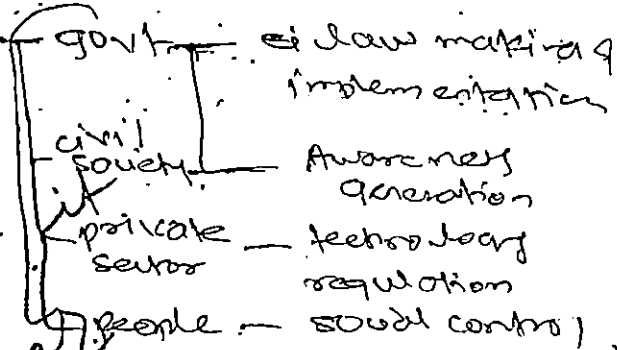 govt — law making &
implementation
civil
society — Awareness
generation
private — technology
sector
regulation
people — social control